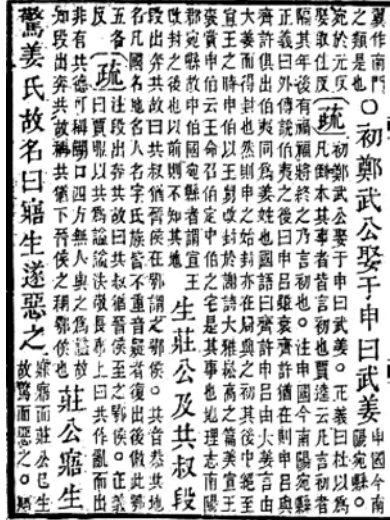 冀作南門
之類是也
〇初鄭武公娶于申曰武姜
申國今南
陽宛縣〇
宛於元反
娶取住反
疏
初鄭武公娶于申曰武姜〇正義曰杜以為
凡倒本其事者皆言初也賈逵云凡言初者
隔其年後有禍福將終之乃言初也〇注申國今南陽宛縣〇
正義曰外傳說伯夷之後曰申呂雖衰齊許猶在則申呂與
齊許俱出伯夷同為姜姓也國語曰齊許申呂由大姜言由
大姜而得封也然則申之始封亦在周興之初其後中絕至
宣王之時申伯以王舅改封於謝詩大雅崧高之篇美宣王
褒賞申伯云王命召伯定申伯之宅是其事也地理志南陽
郡宛縣故申伯國宛縣者謂宣王
改封之後也以前則不知其地
生莊公及共叔段
段出奔共故曰共叔猶晉侯在鄂謂之鄂侯〇共音恭共地
名凡國名地名人名字氏族皆不重音疑者復出後倣此鄂
五各
反
疏
注段出奔共故曰共叔猶晉侯至之鄂侯〇正義
曰賈服以共為謚謚法敬長事上曰共作亂而出
非有共德可稱餬口四方無人與之為謚故
知段出奔共故稱共猶下晉侯之稱鄂侯也
莊公寤生
驚姜氏故名曰寤生遂惡之
寐寤而莊公已生
故驚而惡之〇